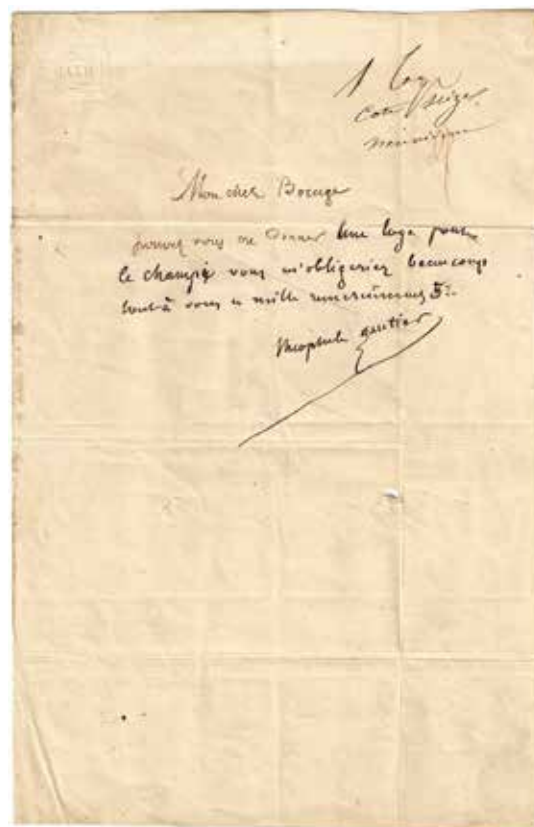 1 loge
Cote seize
Mon cher Bocage
pouvez vous me donner une loge pour
le champi vous m'obligeriez beaucoup
tout à vous et mille remerciemens
théophile gautier